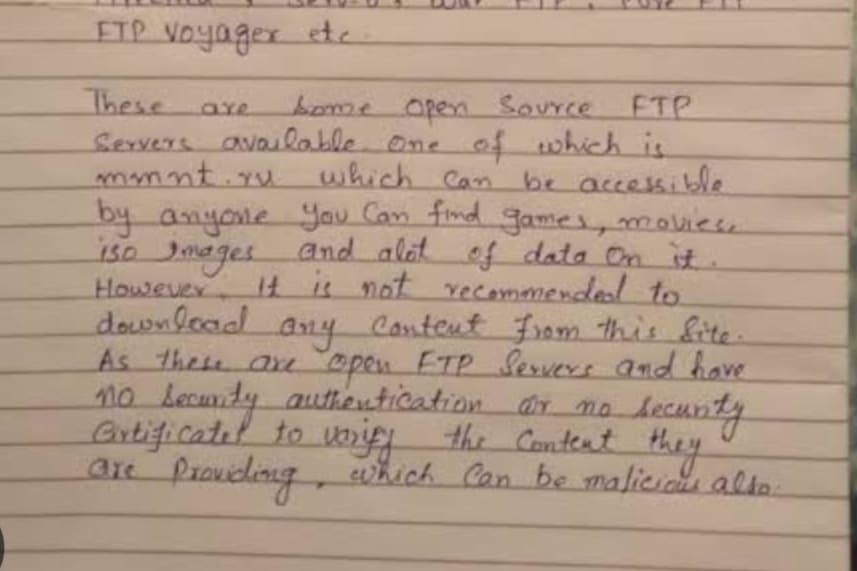 FTP Voyager etc.
These are some open source FTP
Servers available. One of which is
mmnt.ru which can be accessible
by anyone you can find games, movies,
iso Images and alot of data on it.
However, It is not recommended to
download any content from this site.
As these are open FTP Servers and have
no security authentication or no security
Certificates to varify the content they
are Providing, which can be malicious also.